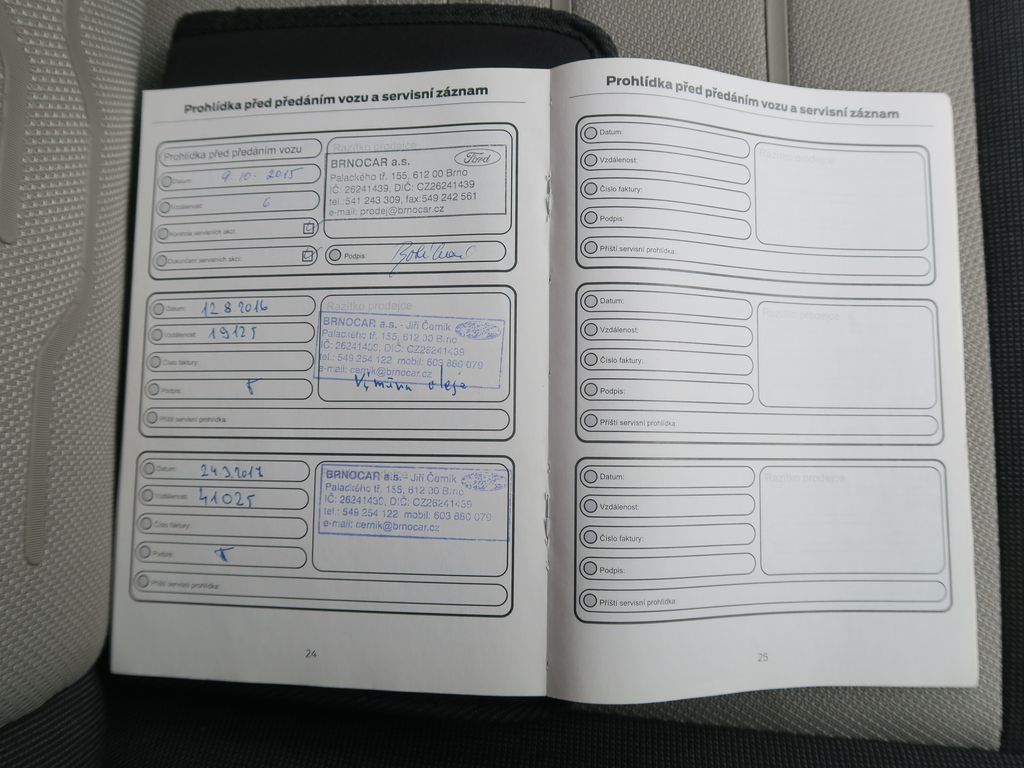 Prohlídka před předáním vozu a servisní záznam
Prohlídka před předáním vozu
Datum: 9.10.2015
Vzdálenost: 6
Kontrola servisních akcí:
Dokončení servisních akcí:
Razítko prodejce
BRNOCAR a.s. Ford
Palackého tř. 155, 612 00 Brno
IČ: 26241439, DIČ: CZ26241439
tel.:541 243 309, fax:549 242 561
e-mail: prodej@brnocar.cz
Podpis:
Datum: 12 8 2016
Vzdálenost: 19125
Číslo faktury:
Podpis:
Příští servisní prohlídka:
Razítko prodejce
BRNOCAR a.s. - Jiří Černík
Palackého tř. 155, 612 00 Brno
IČ: 26241439, DIČ: CZ26241439
tel.: 549 254 122 mobil: 603 880 079
e-mail: cernik@brnocar.cz
Výměna oleje
Datum: 24.3.2017
Vzdálenost: 41025
Číslo faktury:
Podpis:
Příští servisní prohlídka:
BRNOCAR a.s. - Jiří Černík
Palackého tř. 155, 612 00 Brno
IČ: 26241439, DIČ: CZ26241439
tel.: 549 254 122 mobil: 603 880 079
e-mail: cernik@brnocar.cz
24
Prohlídka před předáním vozu a servisní záznam
Datum:
Vzdálenost:
Číslo faktury:
Podpis:
Příští servisní prohlídka:
Razítko prodejce
Datum:
Vzdálenost:
Číslo faktury:
Podpis:
Příští servisní prohlídka:
Razítko prodejce
Datum:
Vzdálenost:
Číslo faktury:
Podpis:
Příští servisní prohlídka:
Razítko prodejce
25